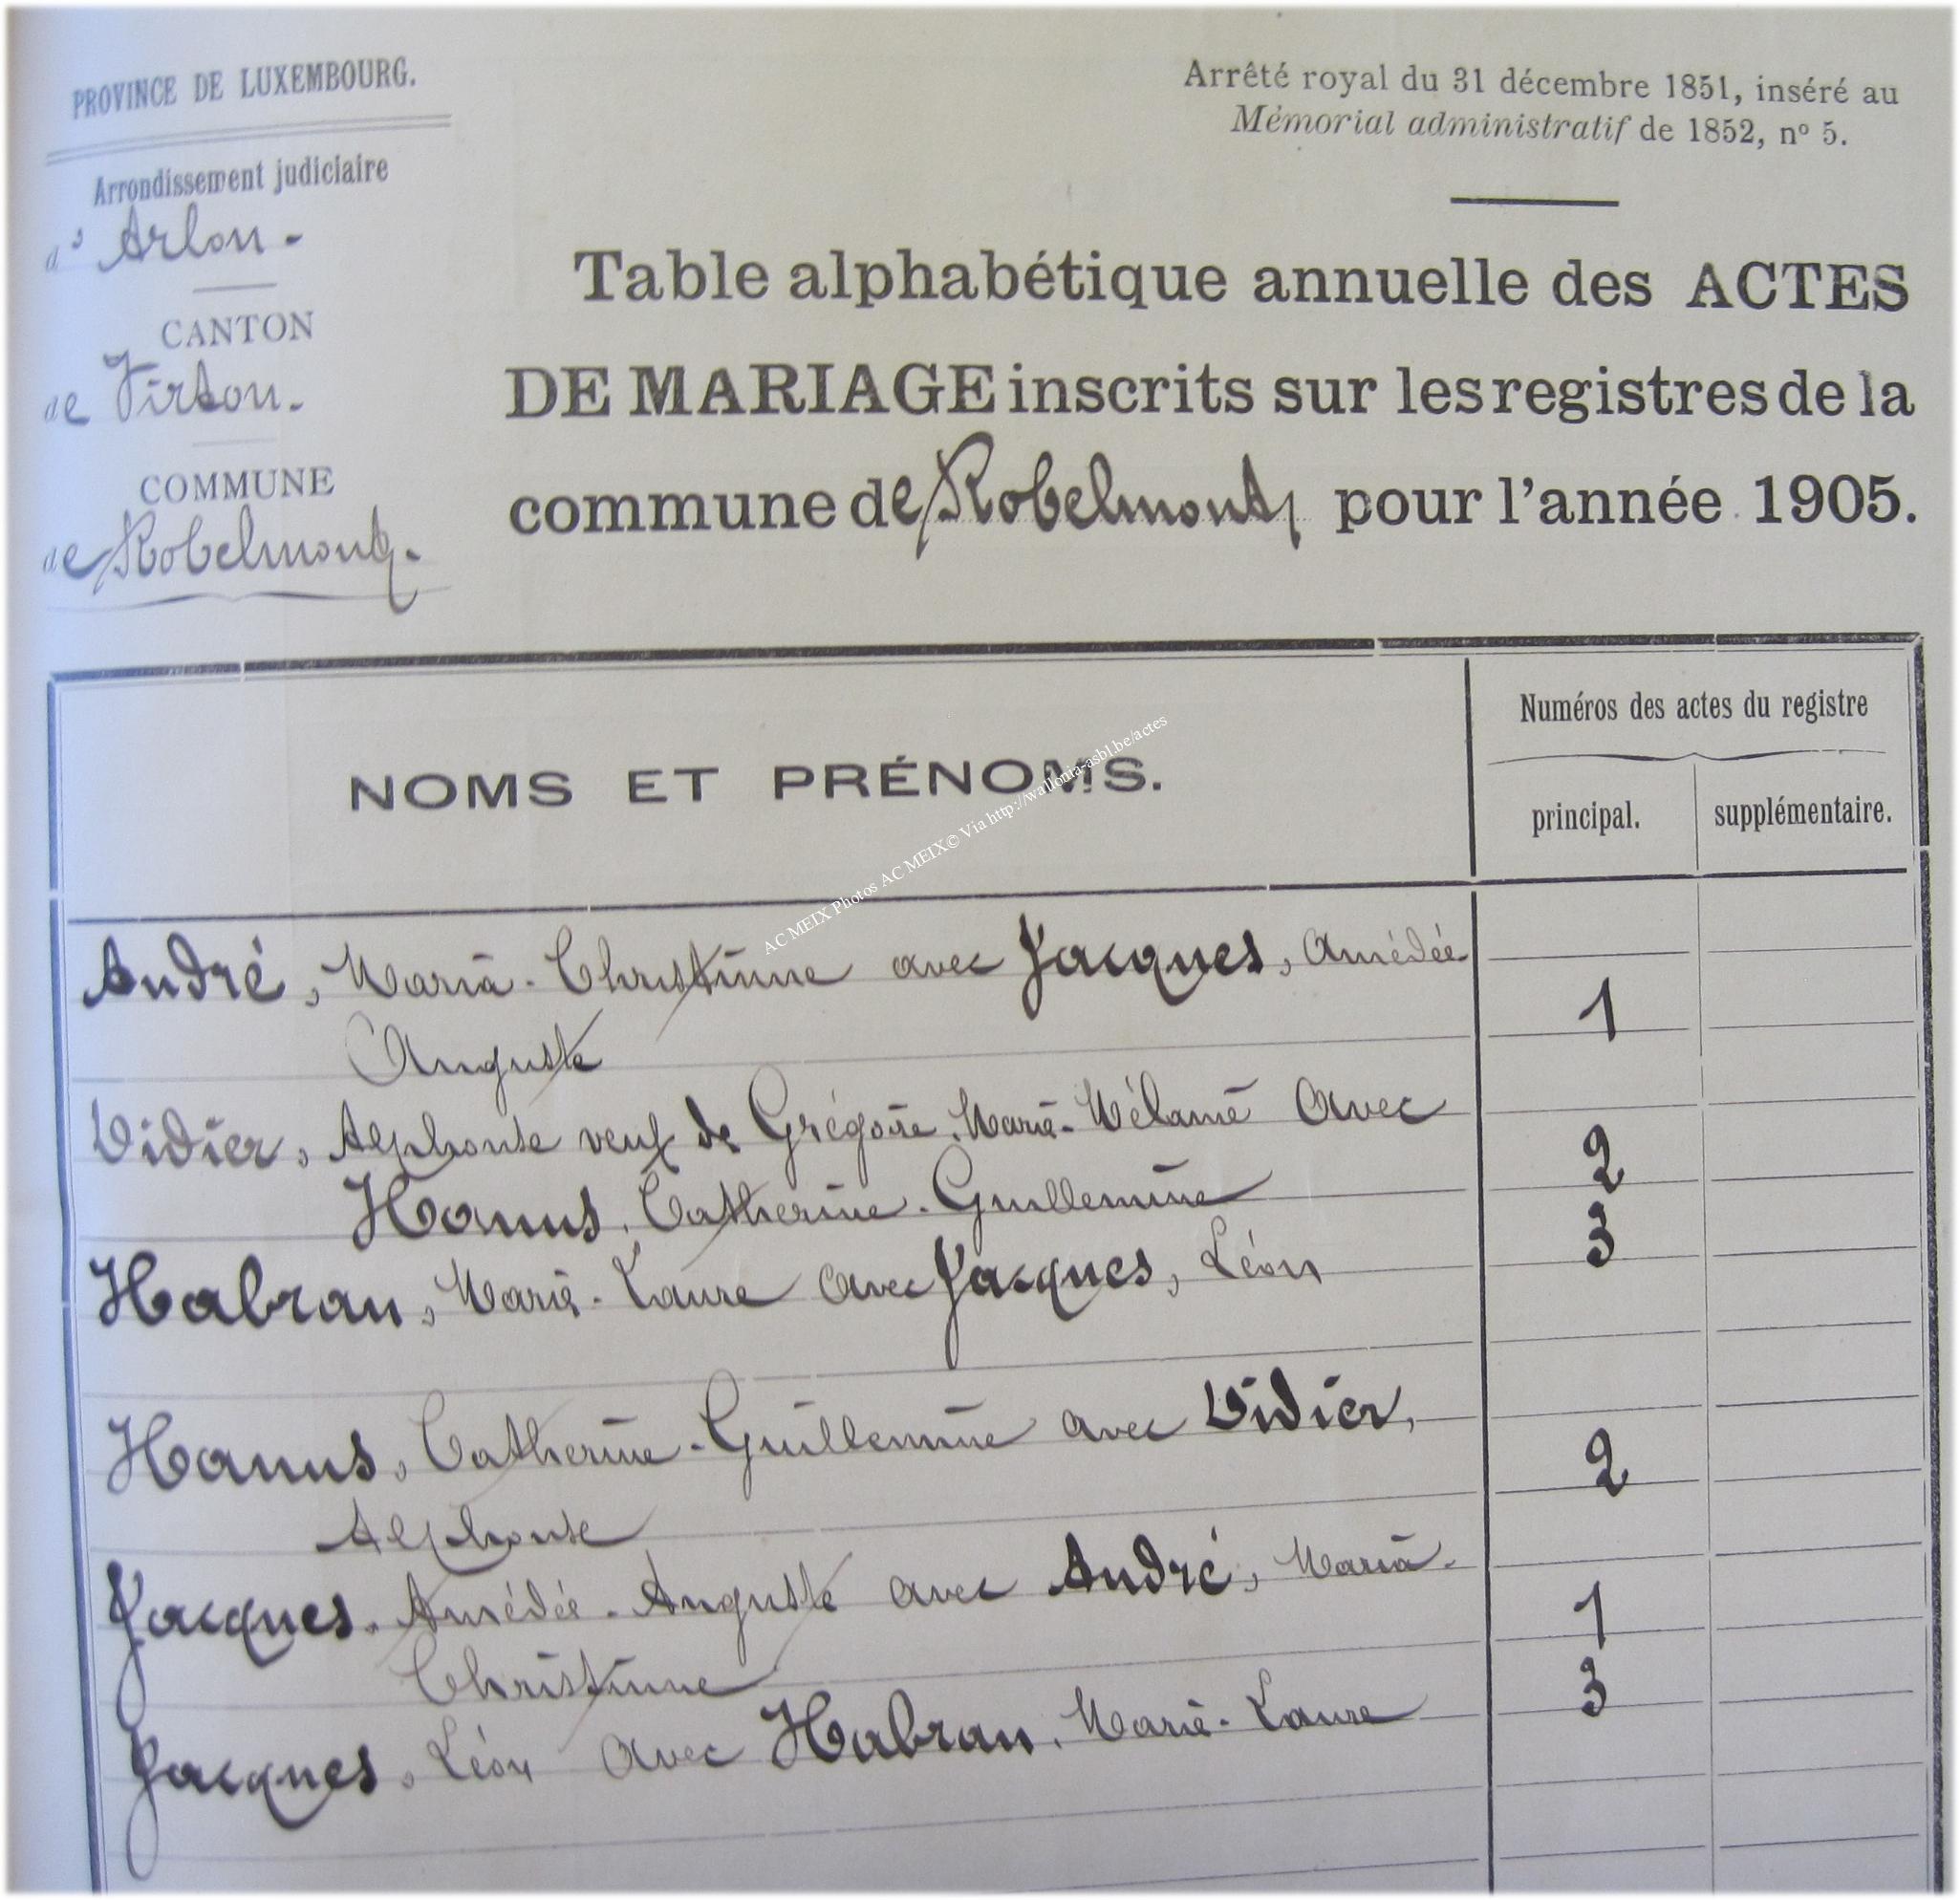 PROVINCE DE LUXEMBOURG.
Arrondissement judiciaire
d'Arlon.
CANTON
de Virton.
COMMUNE
de Robelmont.
Arrêté royal du 31 décembre 1851, inséré au
Mémorial administratif de 1852, nº 5.
Table alphabétique annuelle des ACTES
DE MARIAGE inscrits sur les registres de la
commune de Robelmont pour l'année 1905.
NOMS ET PRÉNOMS.
Numéros des actes du registre
principal. supplémentaire.
AC MEIX Photos AC MEIX© Via http://wallonia-asbl.be/actes
André, Maria-Christinne avec Jacques, Amédée
Auguste 1
Didier, Alphonse veuf de Grégoire Marie-Mélanie avec
Hanus, Catherine-Guillemine 2
Habran, Marie-Laure avec Jacques, Léon 3
Hanus, Catherine-Guillemine avec Didier,
Alphonse 2
Jacques, Amédée-Auguste avec André, Maria-
Christinne 1
Jacques, Léon avec Habran, Marie-Laure 3